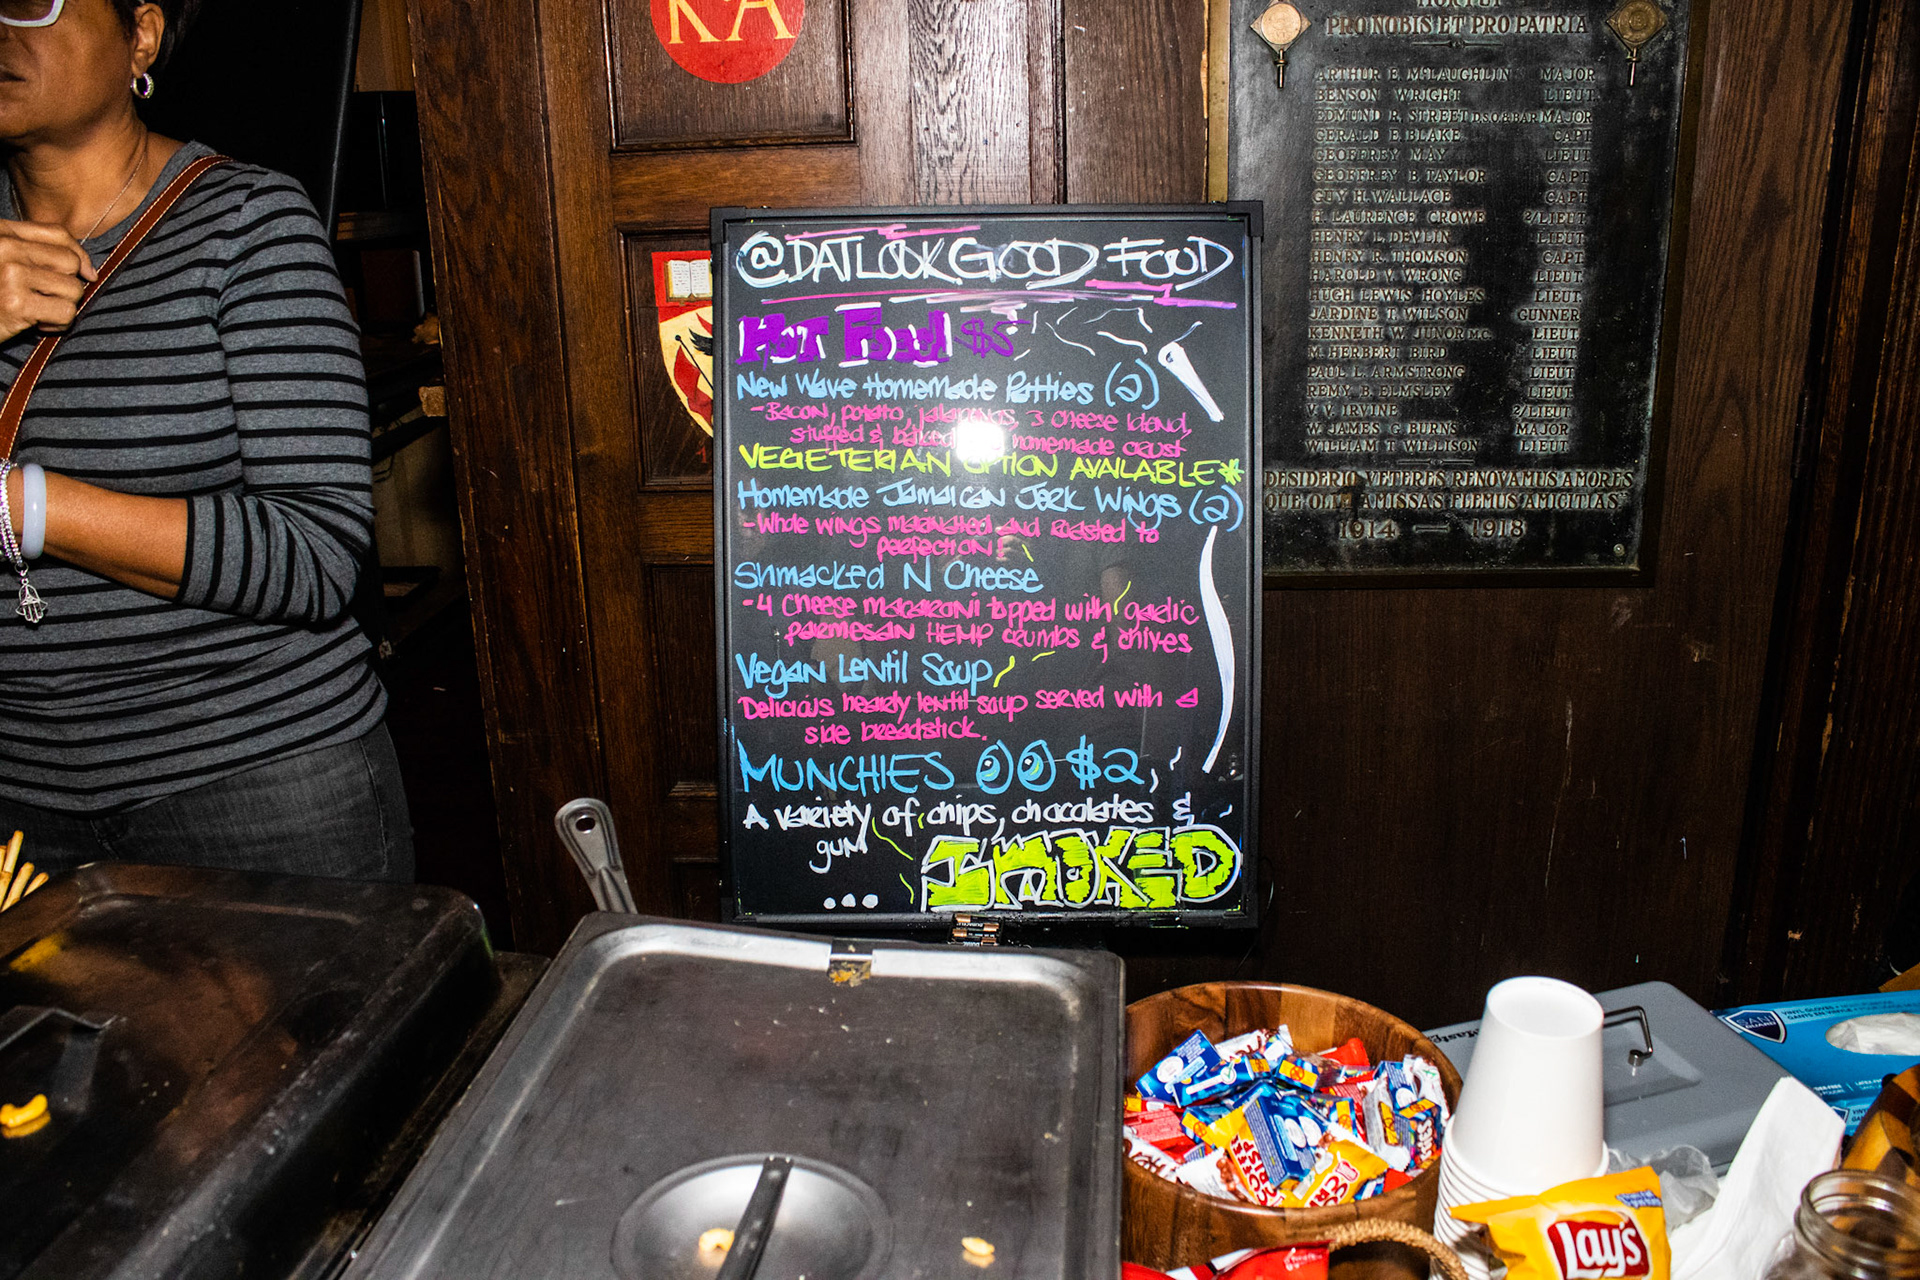 KA
@DATLOOKGOOD FOOD
HOT FOOD $5
New Wave Homemade Patties (2)
-Bacon, potato, jalapenos, 3 cheese blend,
stuffed & baked homemade crust
VEGETERIAN OPTION AVAILABLE*
Homemade Jamaican Jerk Wings (2)
-Whole wings marinated and roasted to
perfection!
Shmacked N Cheese
-4 Cheese macaroni topped with garlic
parmesan HEMP crumbs & chives
Vegan Lentil Soup
Delicious hearty lentil soup served with a
side breadstick.
MUNCHIES $2
A variety of chips, chocolates &
gum
...
SMOKED
PRO NOBIS ET PRO PATRIA
ARTHUR E. McLAUGHLIN MAJOR
BENSON WRIGHT LIEUT.
EDMUND R. STREET D.S.O. & BAR MAJOR
GERALD E. BLAKE CAPT.
GEOFFREY MAY LIEUT.
GEOFFREY B. TAYLOR CAPT.
GUY H. WALLACE CAPT.
H. LAURENCE CROWE 2/LIEUT.
HENRY L. DEVLIN LIEUT.
HENRY R. THOMSON CAPT.
HAROLD V. WRONG LIEUT.
HUGH LEWIS HOYLES LIEUT.
JARDINE T. WILSON GUNNER
KENNETH W. JUNOR M.C. LIEUT.
M. HERBERT BIRD LIEUT.
PAUL L. ARMSTRONG LIEUT.
REMY B. ELMSLEY LIEUT.
V. V. IRVINE 2/LIEUT.
W. JAMES G. BURNS MAJOR
WILLIAM T. WILLISON LIEUT.
DESIDERIO VETERES RENOVAMUS AMORES
QUE OLIM AMISSAS FLEMUS AMICITIAS
1914 — 1918
SANI
VINYL GLOVES
GANTS EN VINYLE
COFFEE
CRISP
Lay's